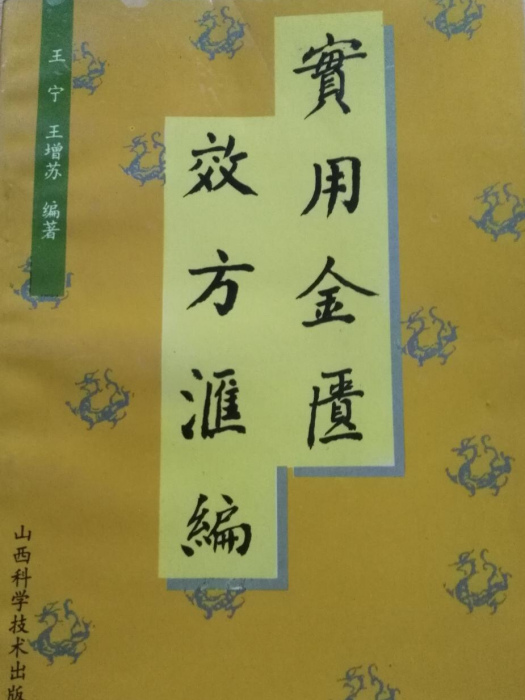 實用金匱
效方滙編
王宁 王增苏 编著
山西科学技术出版